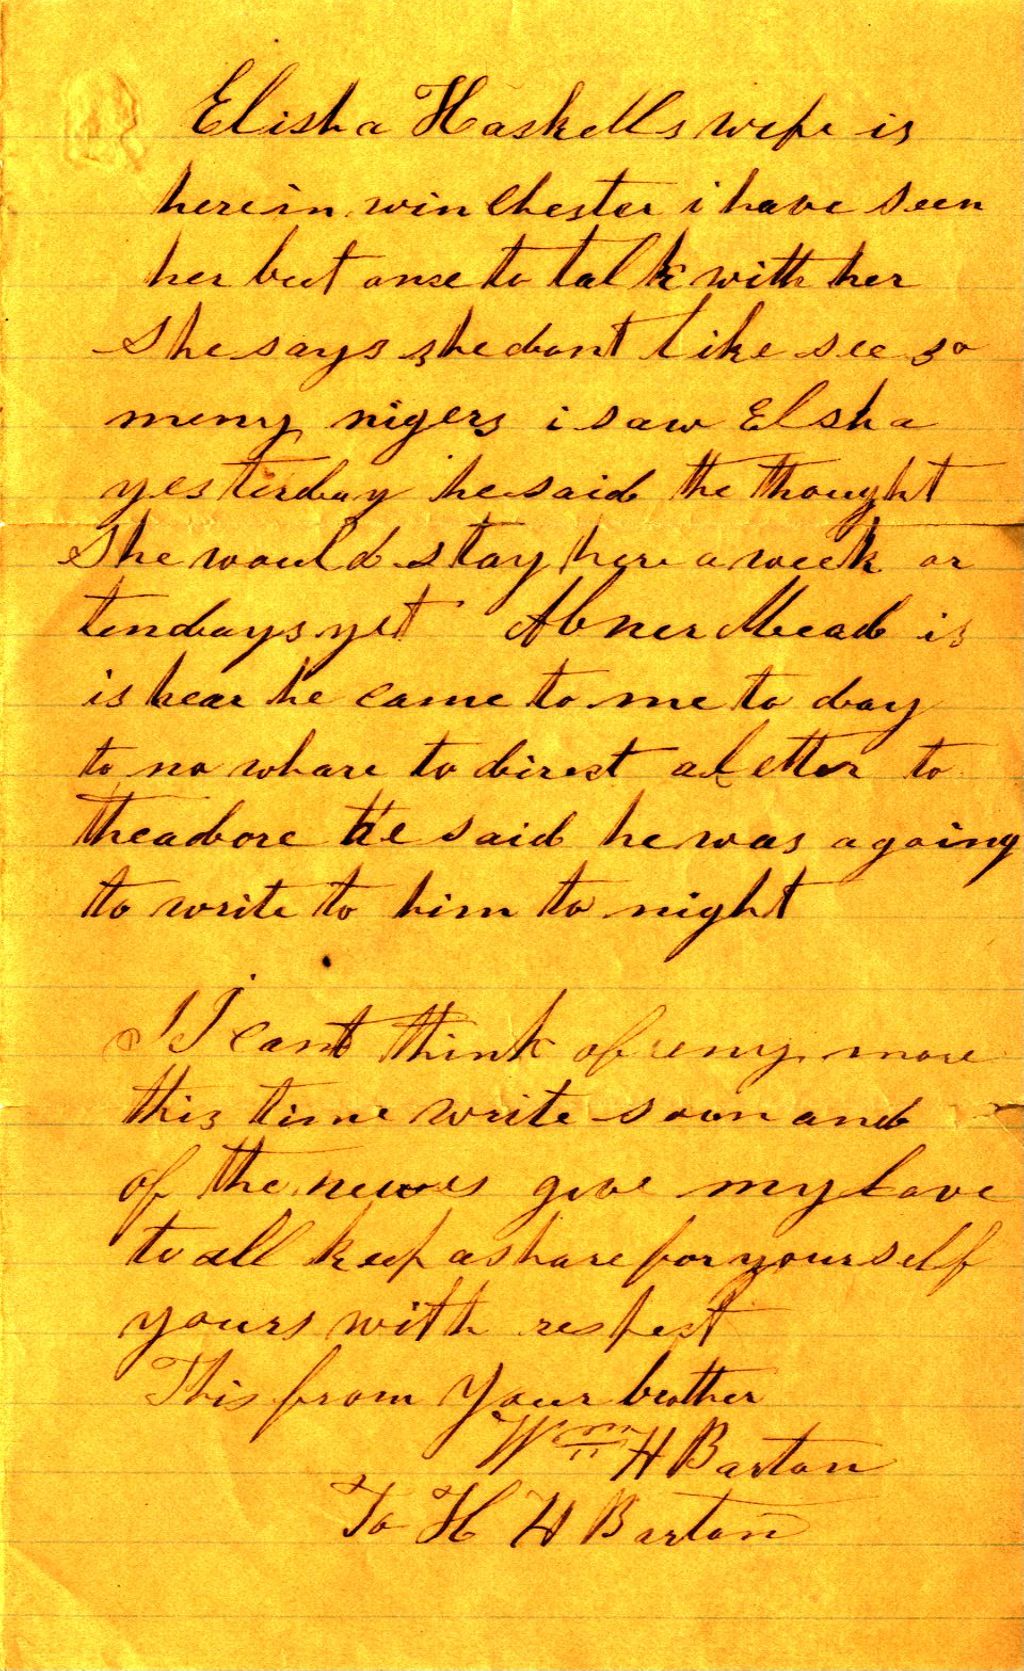 Elisha Haskells wife is
here in winchester i have seen
her but onse to talk with her
She says she dont like see so
meny nigers i saw Elsha
yesterday he said the thought
She would stay here a week or
ten days yet Abner Mead is
is hear he came to me to day
to no whare to direct a letter to
theadore He said he was agoing
to write to him to night
I cant think of eny more
this time write soon and
of the newes give my love
to all keep a share for yourself
yours with respect
This from Your brother
Wm H Barton
To H H Barton